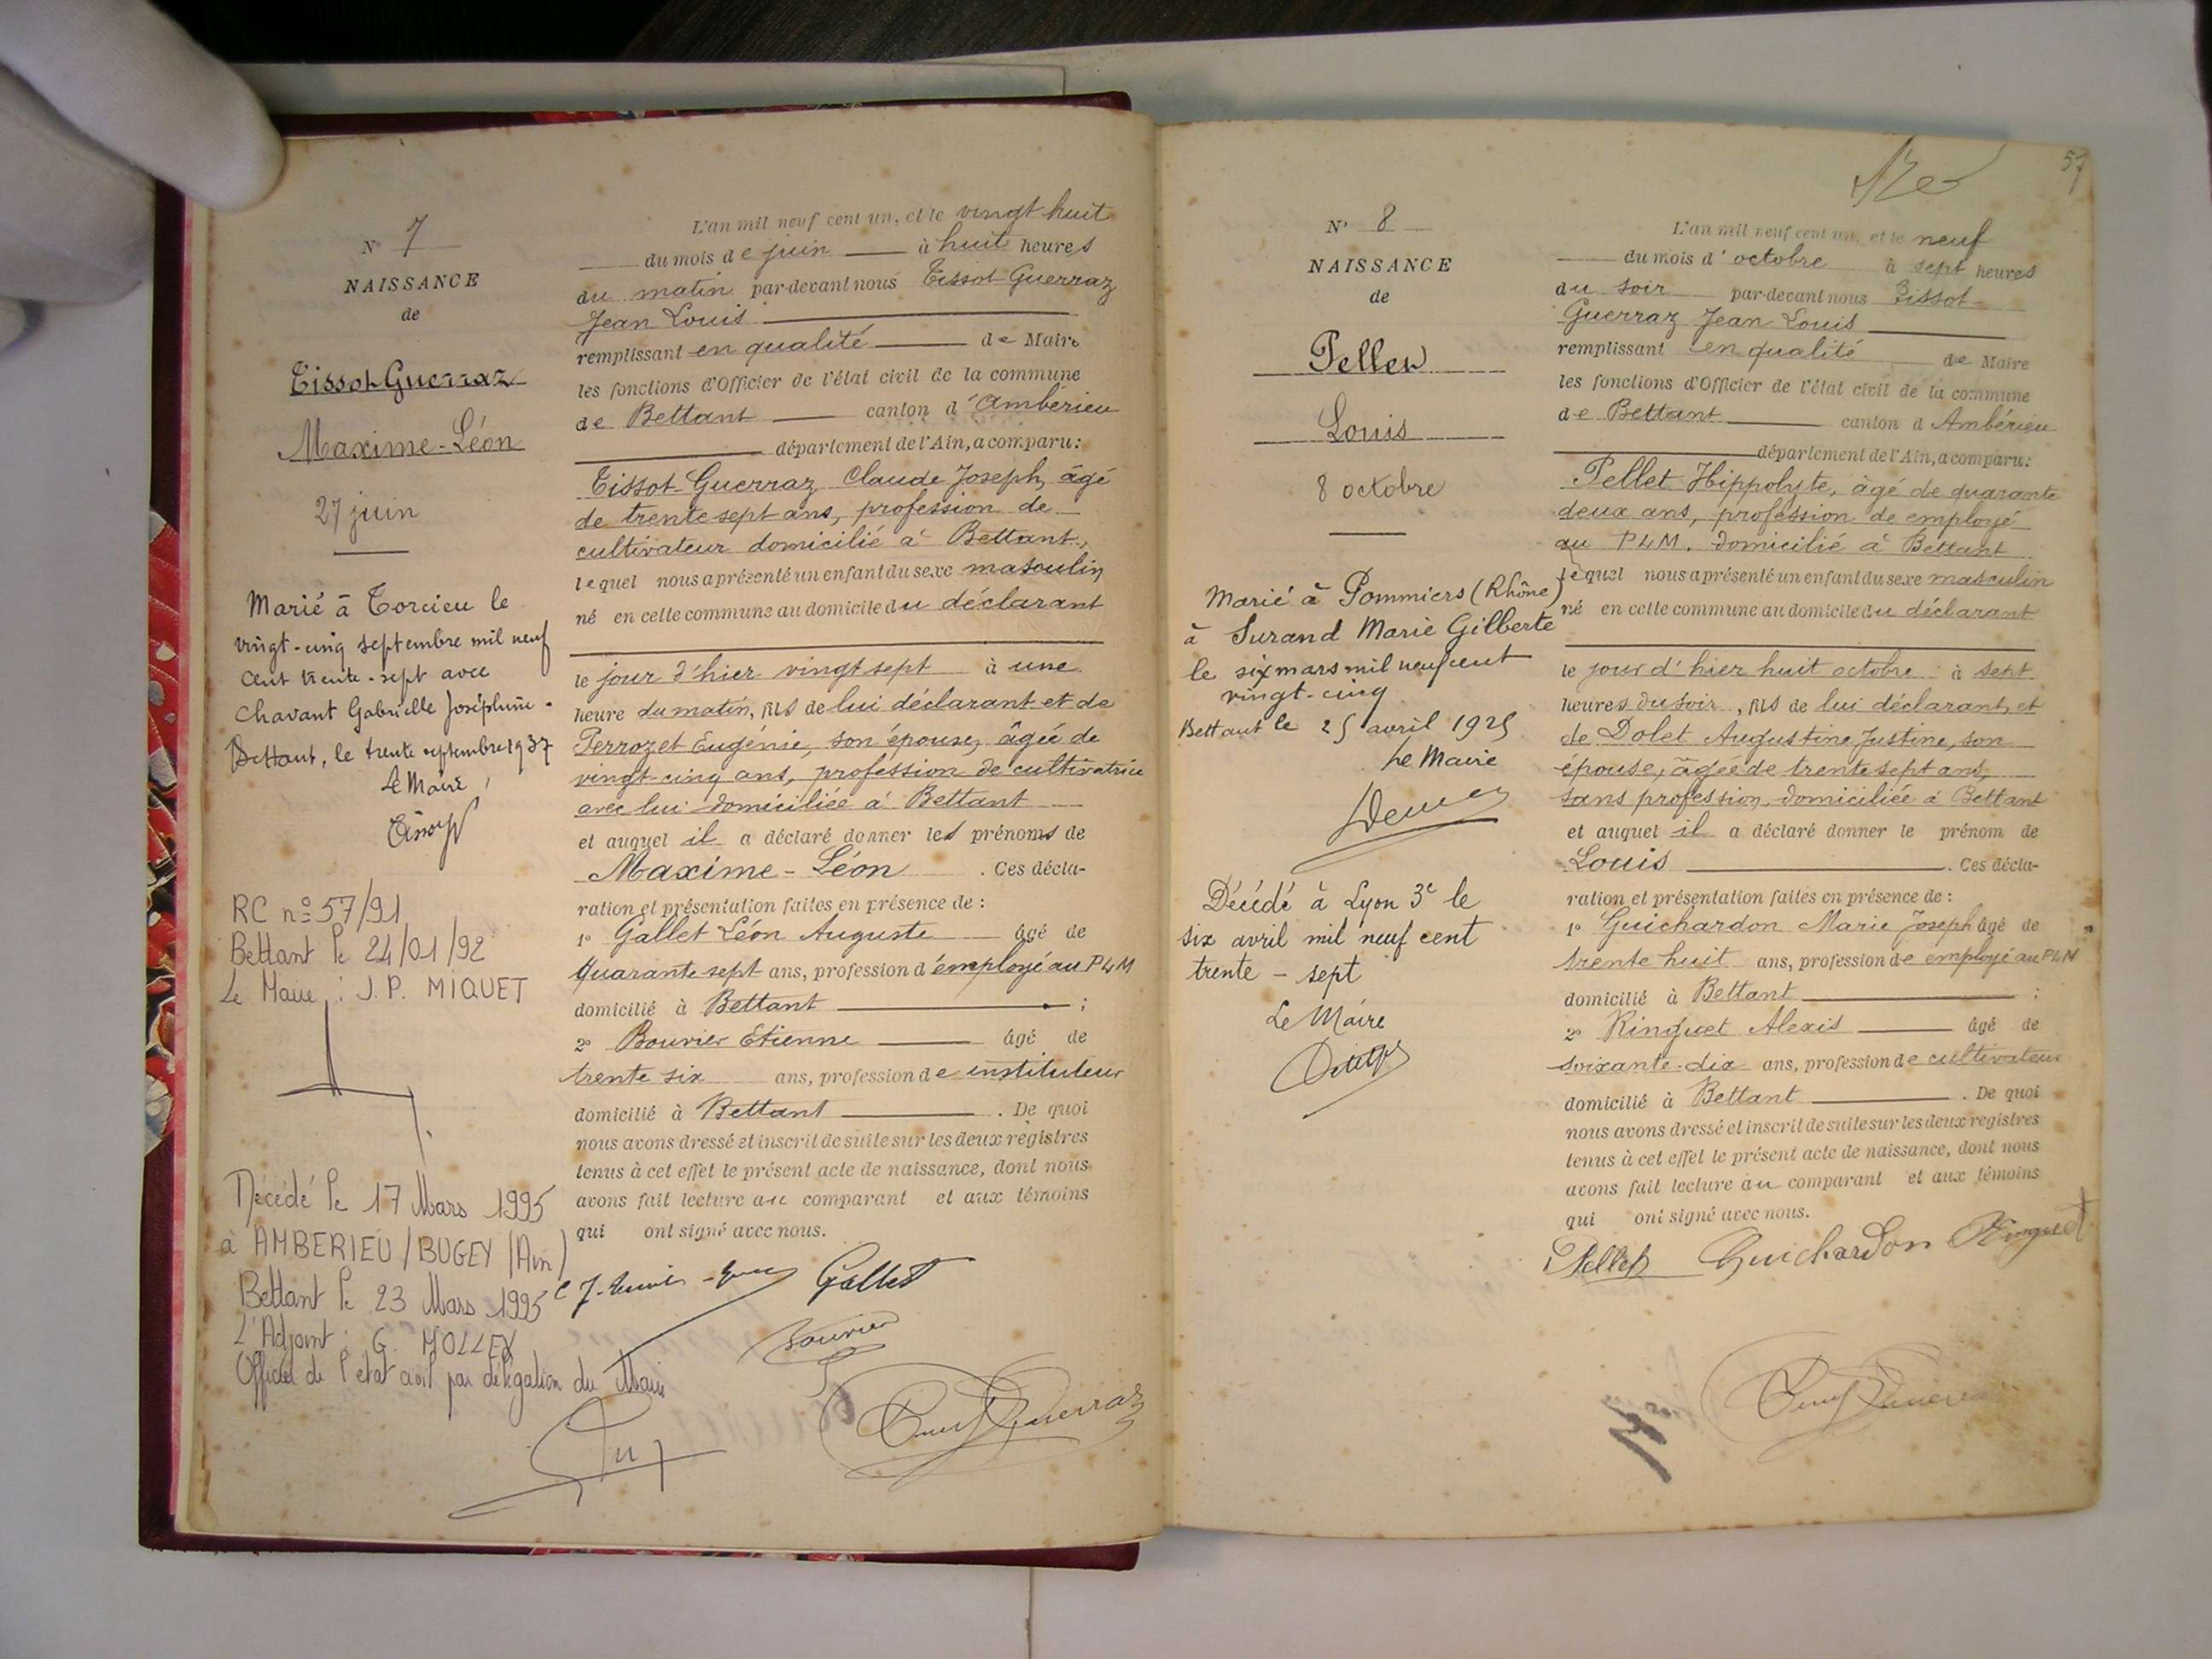 N° 7
NAISSANCE
de
Tissot-Guerraz
Maxime-Léon
27 juin
Marié à Torcieu le
vingt-cinq septembre mil neuf
cent trente-sept avec
Chavant Gabrielle Joséphine.
Bettant, le trente septembre 1937
Le Maire,
RC n° 57/91
Bettant le 24/01/92
Le Maire : J.P. MIQUET
Décédé le 17 Mars 1995
à AMBERIEU/BUGEY (Ain)
Bettant le 23 Mars 1995
L'Adjoint : G. MOLLEX
Officier de l'etat civil par délégation du Maire
L'an mil neuf cent un, et le vingt huit
du mois de juin à huit heures
du matin par-devant nous Tissot-Guerraz
Jean Louis
remplissant en qualité de Maire
les fonctions d'Officier de l'état civil de la commune
de Bettant canton d'Ambérieu
département de l'Ain, a comparu :
Tissot-Guerraz Claude Joseph, âgé
de trente sept ans, profession de
cultivateur domicilié à Bettant,
lequel nous a présenté un enfant du sexe masculin
né en cette commune au domicile du déclarant
le jour d'hier vingt sept à une
heure du matin, fils de lui déclarant et de
Perrozet Eugénie, son épouse, âgée de
vingt-cinq ans, profession de cultivatrice
avec lui domiciliée à Bettant
et auquel il a déclaré donner les prénoms de
Maxime-Léon. Ces décla-
ration et présentation faites en présence de :
1° Gallet Léon Auguste âgé de
quarante-sept ans, profession d'employé au PLM
domicilié à Bettant ;
2° Bouvier Etienne âgé de
trente six ans, profession de instituteur
domicilié à Bettant. De quoi
nous avons dressé et inscrit de suite sur les deux registres
tenus à cet effet le présent acte de naissance, dont nous
avons fait lecture au comparant et aux témoins
qui ont signé avec nous.
Gallet
Bouvier
Guerraz
57
N° 8
NAISSANCE
de
Pellet
Louis
8 octobre
Marié à Pommiers (Rhône)
à Surand Marie Gilberte
le six mars mil neuf cent
vingt-cinq
Bettant le 25 avril 1925
Le Maire
Décédé à Lyon 3e le
six avril mil neuf cent
trente-sept
Le Maire
L'an mil neuf cent un, et le neuf
du mois d'octobre à sept heures
du soir par-devant nous Tissot
Guerraz Jean Louis
remplissant en qualité de Maire
les fonctions d'Officier de l'état civil de la commune
de Bettant canton d'Ambérieu
département de l'Ain, a comparu :
Pellet Hippolyte, âgé de quarante
deux ans, profession de employé
au PLM. domicilié à Bettant
lequel nous a présenté un enfant du sexe masculin
né en cette commune au domicile du déclarant
le jour d'hier huit octobre à sept
heures du soir, fils de lui déclarant, et
de Dolet Augustine Justine, son
épouse, âgée de trente sept ans,
sans profession domiciliée à Bettant
et auquel il a déclaré donner le prénom de
Louis. Ces décla-
ration et présentation faites en présence de :
1° Guichardon Marie Joseph âgé de
trente huit ans, profession de employé au PLM
domicilié à Bettant ;
2° Ringuet Alexis âgé de
soixante-dix ans, profession de cultivateur
domicilié à Bettant. De quoi
nous avons dressé et inscrit de suite sur les deux registres
tenus à cet effet le présent acte de naissance, dont nous
avons fait lecture au comparant et aux témoins
qui ont signé avec nous.
Pellet Guichardon Ringuet